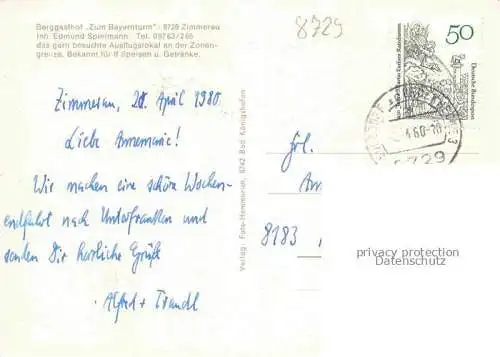 Berggasthof "Zum Bayernturm" · 8729 Zimmerau
Inh. Edmund Spielmann Tel. 09763/266
das gern besuchte Ausflugslokal an der Zonen-
grenze. Bekannt für Speisen u. Getränke.
8729
50
Deutsche Bundespost
8729
Zimmerau, 20. April 1980
Liebe Annemarie!
Wir machen eine schöne Wochen-
endfahrt nach Unterfranken und
senden Dir herzliche Grüße
Alfred + Traudl
Verlag: Foto-Hemmerum, 8742 Bad Königshofen
Frl.
An
8183
privacy protection
Datenschutz